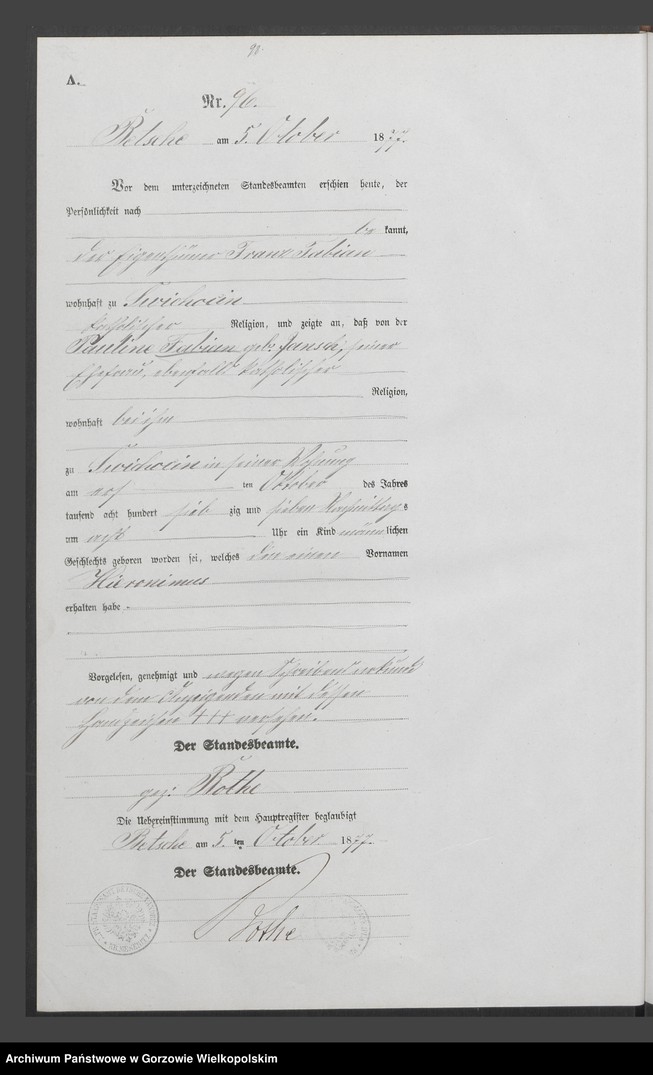 90.
A.
Nr. 96.
Betsche am 5. October 1877.
Vor dem unterzeichneten Standesbeamten erschien heute, der
Persönlichkeit nach
be kannt,
der Eigenthümer Franz Fabian
wohnhaft zu
katholischer Religion, und zeigte an, daß von der
Pauline Fabian geb. seiner
Ehefrau, ebenfalls katholischer
Religion,
wohnhaft bei ihm
zu in seiner Wohnung
am ten Oktober des Jahres
tausend acht hundert sieb zig und sieben Nachmittags
um acht Uhr ein Kind männlichen
Geschlechts geboren worden sei, welches den einen Vornamen
Hieronimus
erhalten habe.
Vorgelesen, genehmigt und wegen Schreibensunkunde
von dem Anzeigenden mit dessen
Handzeichen +++ versehen.
Der Standesbeamte.
gez: Rothe
Die Uebereinstimmung mit dem Hauptregister beglaubigt
Betsche am 5. ten October 1877.
Der Standesbeamte.
Rothe
Archiwum Państwowe w Gorzowie Wielkopolskim